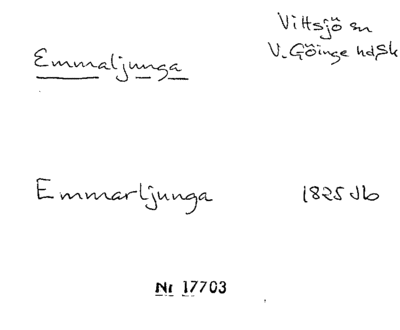 Vittsjö sn
Emmaljunga
V. Göinge hd, Sk
Emmarljunga 1825 Jb
Nr 17703